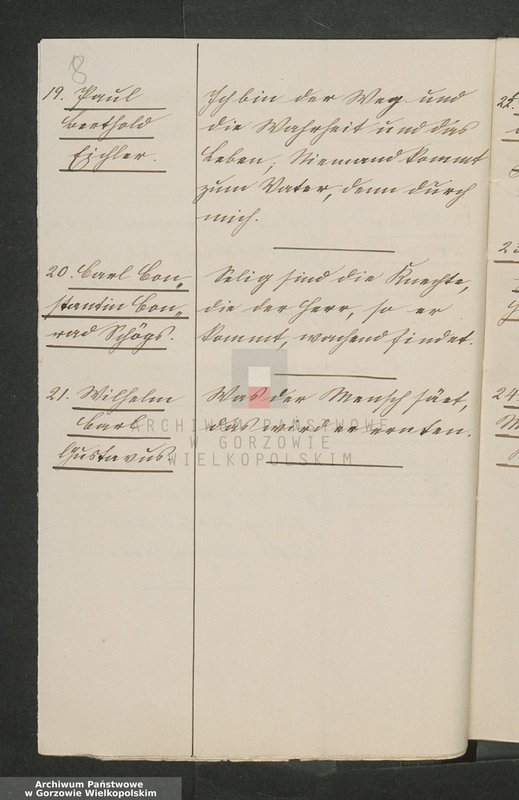 8
19. Paul
Berthold
Eichler.
Ich bin der Weg und
die Wahrheit und das
Leben; Niemand kommt
zum Vater, denn durch
mich.
20. Carl Con„
stantin Con„
rad Schögs.
Selig sind die Knechte,
die der Herr, so er
kommt, wachend findet.
21. Wilhelm
Carl
Gustavus.
Was der Mensch säet,
das wird er ernten.
ARCHIWUM PAŃSTWOWE
W GORZOWIE
WIELKOPOLSKIM
22.
23
24
Archiwum Państwowe
w Gorzowie Wielkopolskim